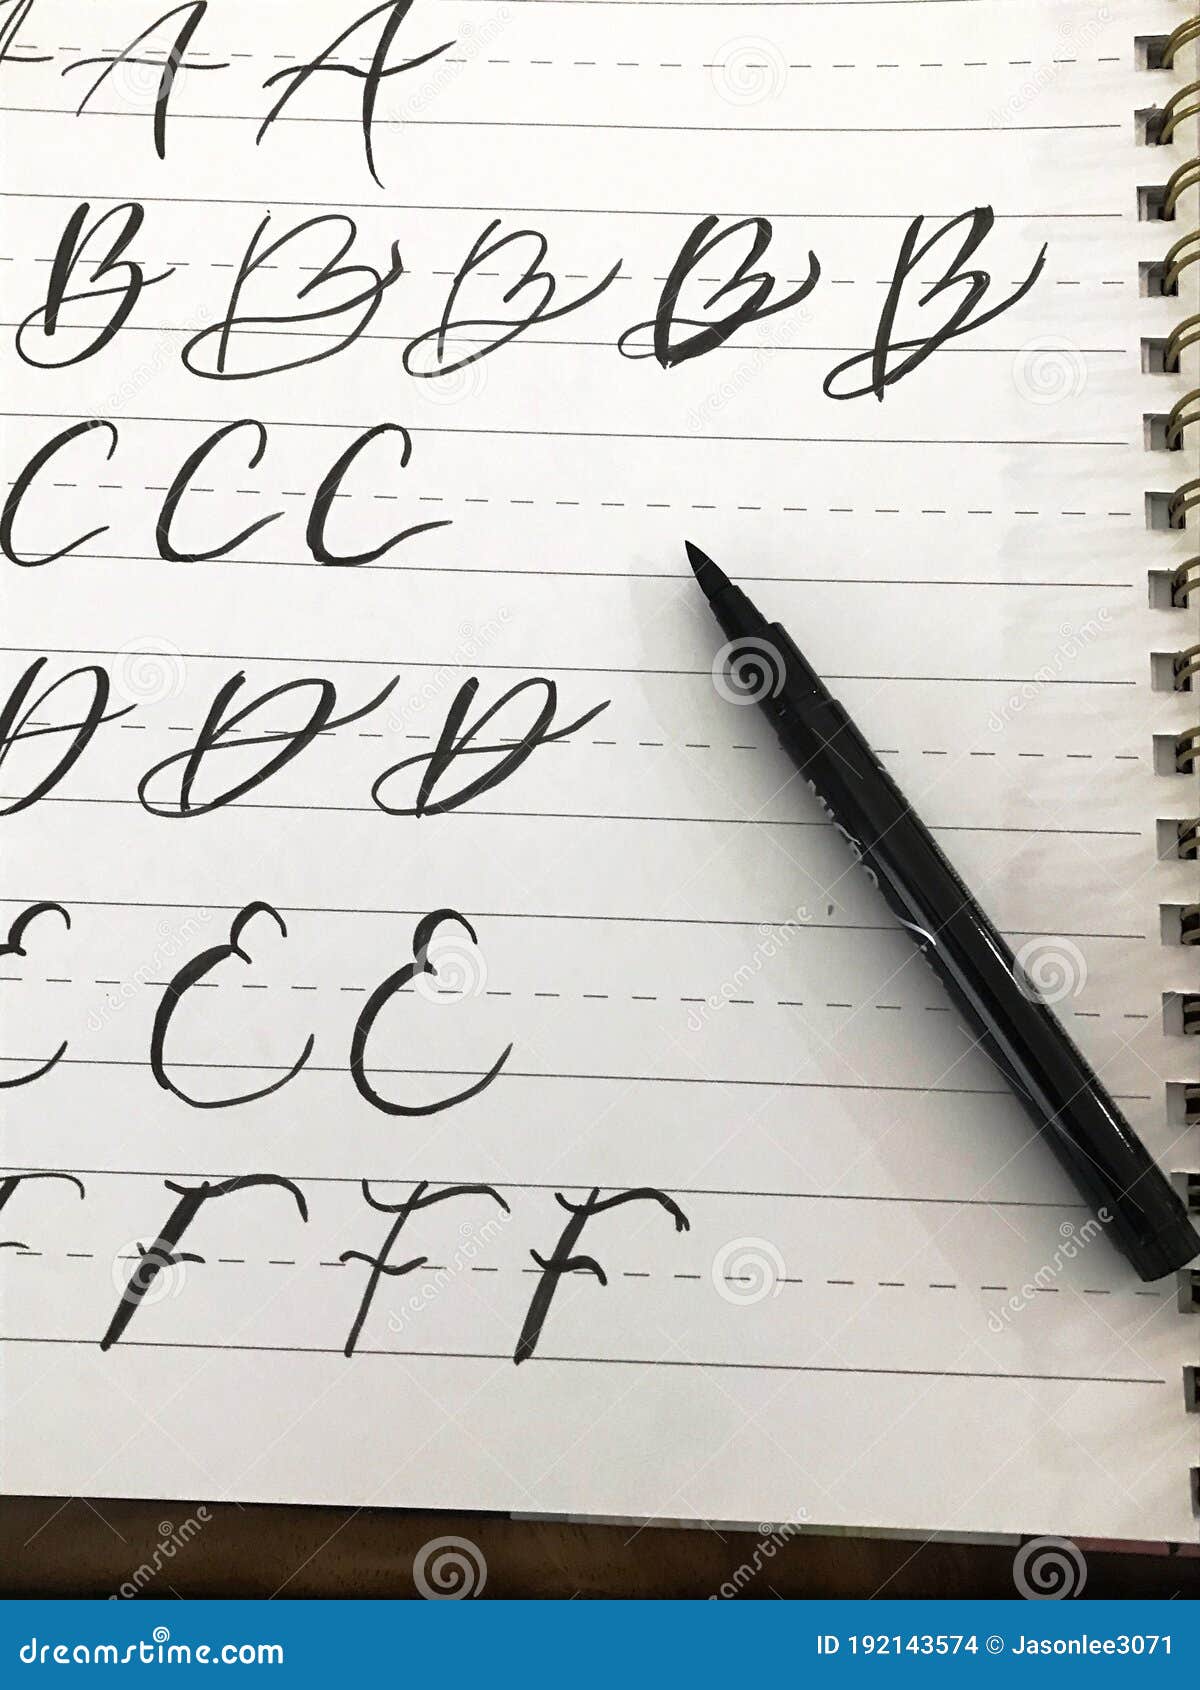 A A A
B B B B B
C C C
D D D
E E E
F F F F
dreamstime.com
ID 192143574 © Jasonlee3071